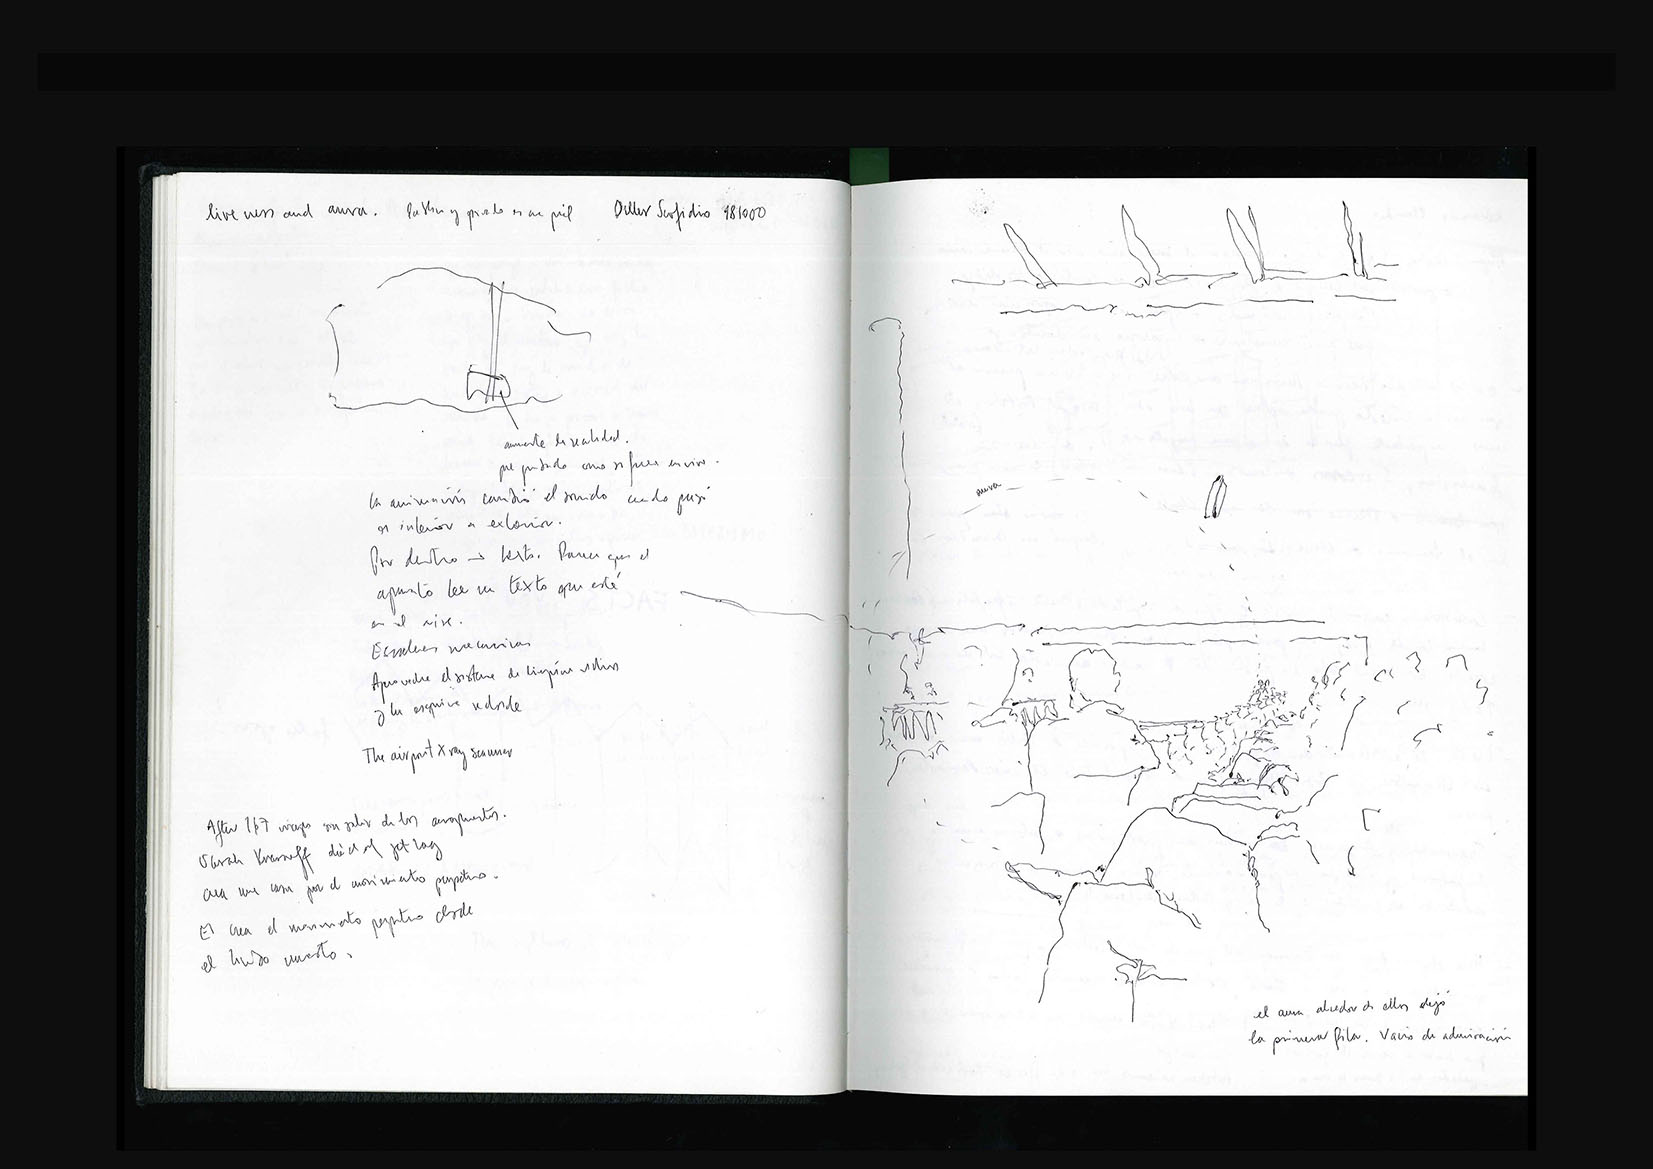 liveness and aura. Diller Scofidio 981000
aumenta la realidad.
como si fuera en vivo.
la animación cambió el sonido cuando pasó
de interior a exterior.
Por dentro → texto. Parece que el
apunto lee un texto que está
en el aire.
Escaleras mecánicas
Aprovecha el sistema de limpiar vidrios
y la esquina redonda
The airport X ray scanner
After 167 viajes sin salir de los aeropuertos.
Sarah Krasnoff del jet lag
crea una casa por el movimiento perpetuo.
El crea el movimiento perpetuo desde
el
aura
el aura alrededor de ellos dejó
la primera fila. Vacío de admiración